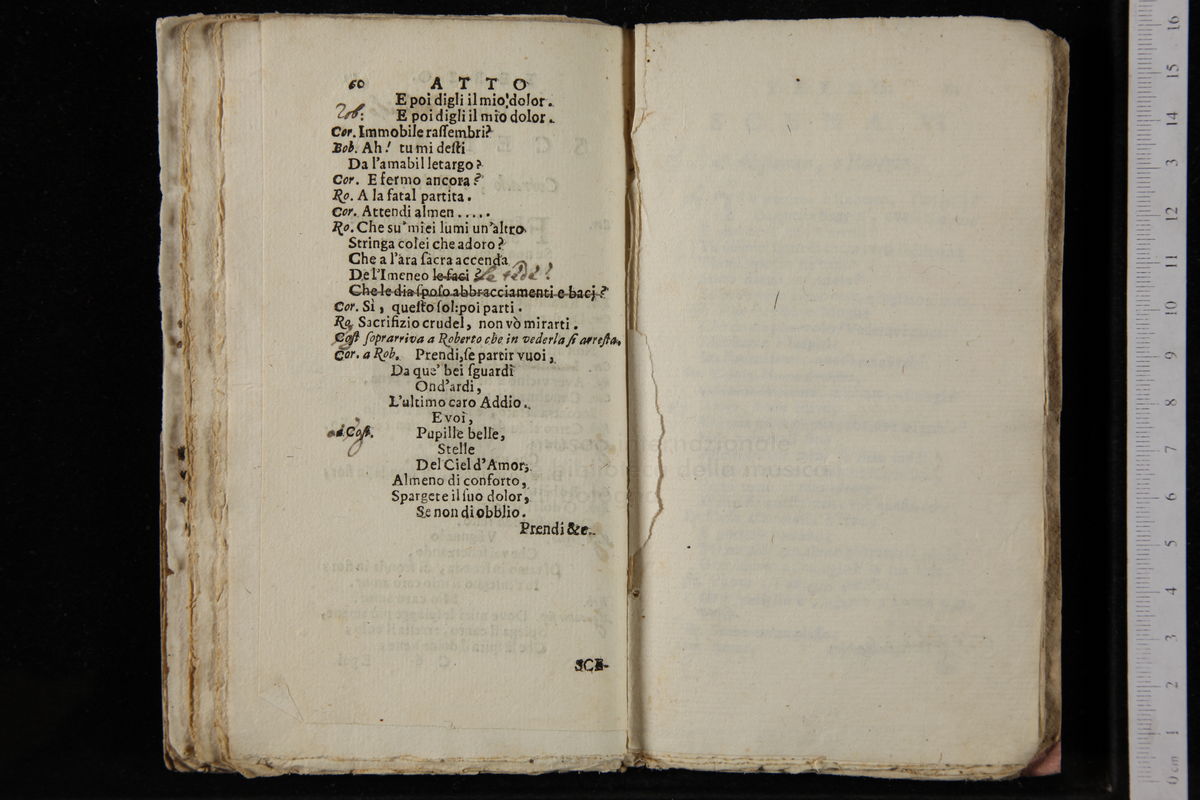 60 ATTO
E poi digli il mio dolor.
Rob: E poi digli il mio dolor.
Cor. Immobile raſſembri?
Rob. Ah! tu mi deſti
Da l'amabil letargo?
Cor. E fermo ancora?
Ro. A la fatal partita.
Cor. Attendi almen .....
Ro. Che su' miei lumi un'altro
Stringa colei che adoro?
Che a l'àra ſacra accenda
De l'Imeneo le faci? le tede?
Che le dia ſpoſo abbracciamenti e bacj?
Cor. Sì, queſto ſol: poi parti.
Ro. Sacrifizio crudel, non vò mirarti.
Coſt ſoprarriva a Roberto che in vederla ſi arreſta.
Cor. a Rob. Prendi, ſe partir vuoi,
Da que' bei ſguardi
Ond'ardi,
L'ultimo caro Addio.
E voi,
a Coſt. Pupille belle,
Stelle
Del Ciel d'Amor,
Almeno di conforto,
Spargete il ſuo dolor,
Se non di obblio.
Prendi &c.
SCE-
museo internazionale
e biblioteca della musica
di bologna
0 cm 1 2 3 4 5 6 7 8 9 10 11 12 13 14 15 16